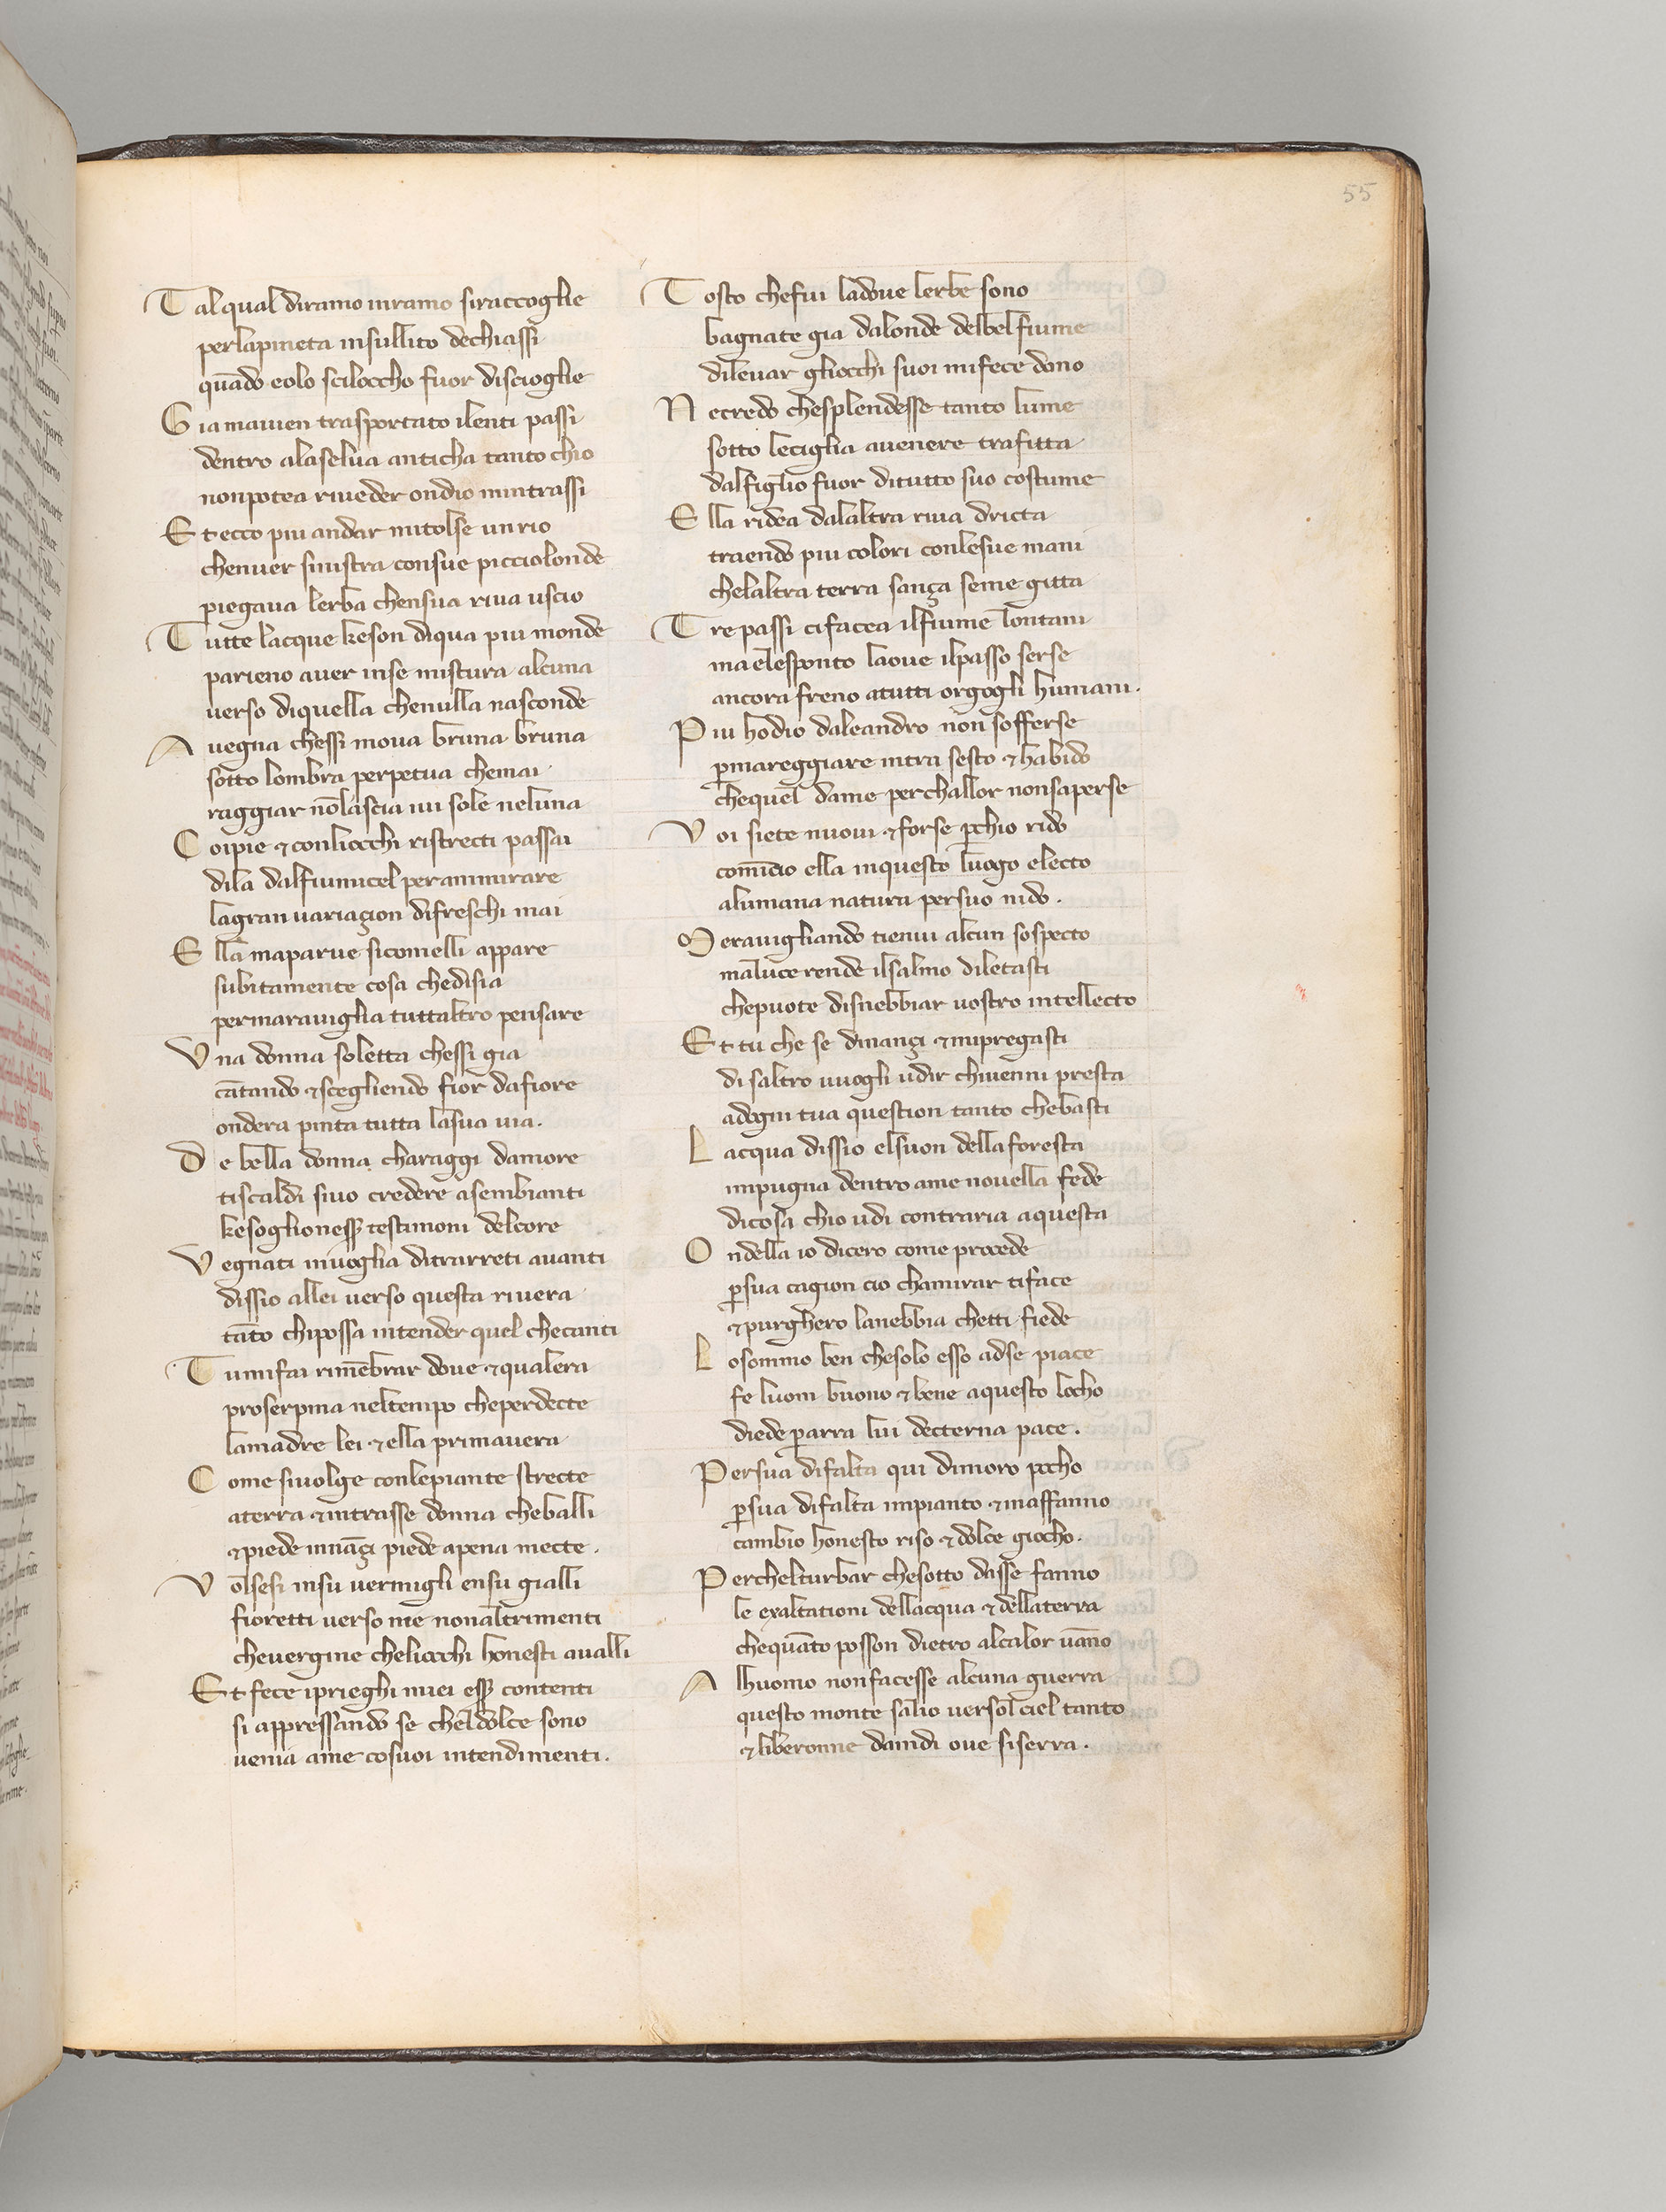 55
Tal qual diramo inramo siraccoglie
perlapineta insullito dechiassi
quādo eolo sciloccho fuor discioglie
Gia mavien trasportato ilenti passi
dentro alaselva anticha tanto chio
nonpotea riveder ondio mintrassi
Et ecco piu andar mitolse un rio
chenver sinistra consue picciolonde
piegava lerba chensua riva uscio
Tutte lacque keson diqua piu monde
parieno aver inse mistura alcuna
verso diquella chenulla nasconde
Avegna chessi mova bruna bruna
sotto lombra perpetua chemai
raggiar nōlascia ivi sole neluna
Coipie & conliocchi ristrecti passai
dila dalfiumicel perammirare
lagran variaçion difreschi mai
Ella maparve sicomelli appare
subitamente cosa chedisia
permaraviglia tuttaltro pensare
Una donna soletta chessi gia
cātando & scegliendo fior dafiore
ondera pinta tutta lasua via.
De bella donna charaggi damore
tiscaldi sivo credere asembianti
kesoglionesser testimoni delcore
Vegnati invoglia ditrarreti avanti
dissio allei verso questa rivera
tāto chipossa intender quel checanti
Tumifai rimēbrar dove & qualera
proserpina neltempo cheperdecte
lamadre lei & ella primavera
Come sivolge conlepiante strecte
aterra & intrasse donna cheballi
& piede innāçi piede apena mecte.
Volsesi insu vermigli ensu gialli
fioretti verso me nonaltrimenti
chevergine cheliocchi honesti avalli
Et fece iprieghi miei esser contenti
si appressando se cheldolce sono
venia ame cosuoi intendimenti.
Tosto chefui ladove lerbe sono
bagnate gia dalonde delbelfiume
dilevar gliocchi suoi mifece dono
Necredo chesplendesse tanto lume
sotto leciglia avenere trafitta
dalfiglio fuor ditutto suo costume
Ella ridea dalaltra riva dricta
traendo piu colori conlesue mani
chelaltra terra sança seme gitta
Tre passi cifacea ilfiume lontani
ma elesponto laove ilpasso serse
ancora freno atutti orgogli humani.
Piu hodio daleandro non sofferse
pmareggiare intra sesto & habido
chequel dame perchallor nonsaperse
Voi siete nuovi & forse pchio rido
comīcio ella inquesto luogo electo
alumana natura persuo nido.
Meravigliando tienvi alcun sospecto
ma luce rende ilsalmo diletasti
chepuote disnebbiar vostro intellecto
Et tu che se dinançi & mipregasti
di saltro vuogli udir chivenni presta
adogni tua question tanto chebasti
Lacqua dissio elsuon dellaforesta
impugna dentro ame novella fede
dicosa chio udi contraria aquesta
Ondella io dicero come procede
psua cagion cio chamirar tiface
& purghero lanebbia chetti fiede
Losommo ben chesolo esso adse piace
fe luom buono & bene aquesto locho
diede parra lui decterna pace.
Persua difalta qui dimoro pocho
psua difalta impianto & inaffanno
cambio honesto riso & dolce giocho.
Perchelturbar chesotto dasse fanno
le exaltationi dellacqua & dellaterra
chequāto posson dietro alcalor vāno
Alhuomo nonfacesse alcuna guerra
questo monte salio versolciel tanto
& liberonne daindi ove siserra.